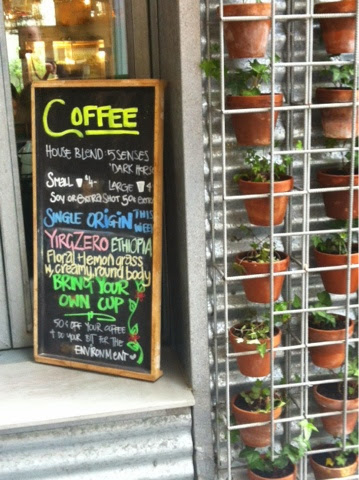 COFFEE
HOUSE BLEND: 5 SENSES
"DARK HORSE"
SMALL $4- LARGE $4
SOY OR EXTRA SHOT 50¢ EXTRA
SINGLE ORIGIN THIS WEEK
YIRGZERO ETHIOPIA
Floral & lemongrass
w, creamy, round body
BRING YOUR
OWN CUP
50¢ OFF YOUR COFFEE
& DO YOUR BIT FOR THE
ENVIRONMENT